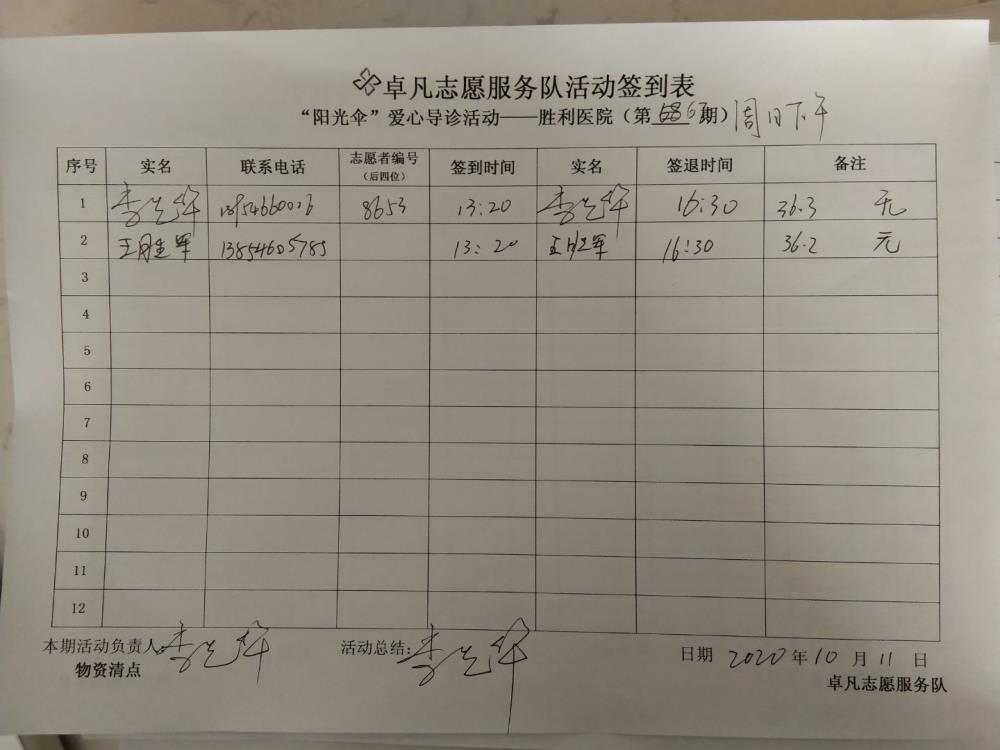 卓凡志愿服务队活动签到表
“阳光伞”爱心导诊活动——胜利医院（第 期）周日下午
序号 实名 联系电话 志愿者编号（后四位） 签到时间 实名 签退时间 备注
1 李先华 8653 13:20 李先华 16:30 36.3 无
2 王胜军 13854605785 13:20 王胜军 16:30 36.2 无
3
4
5
6
7
8
9
10
11
12
本期活动负责人：李先华 活动总结：李先华 日期 2020年10月11日
物资清点 卓凡志愿服务队